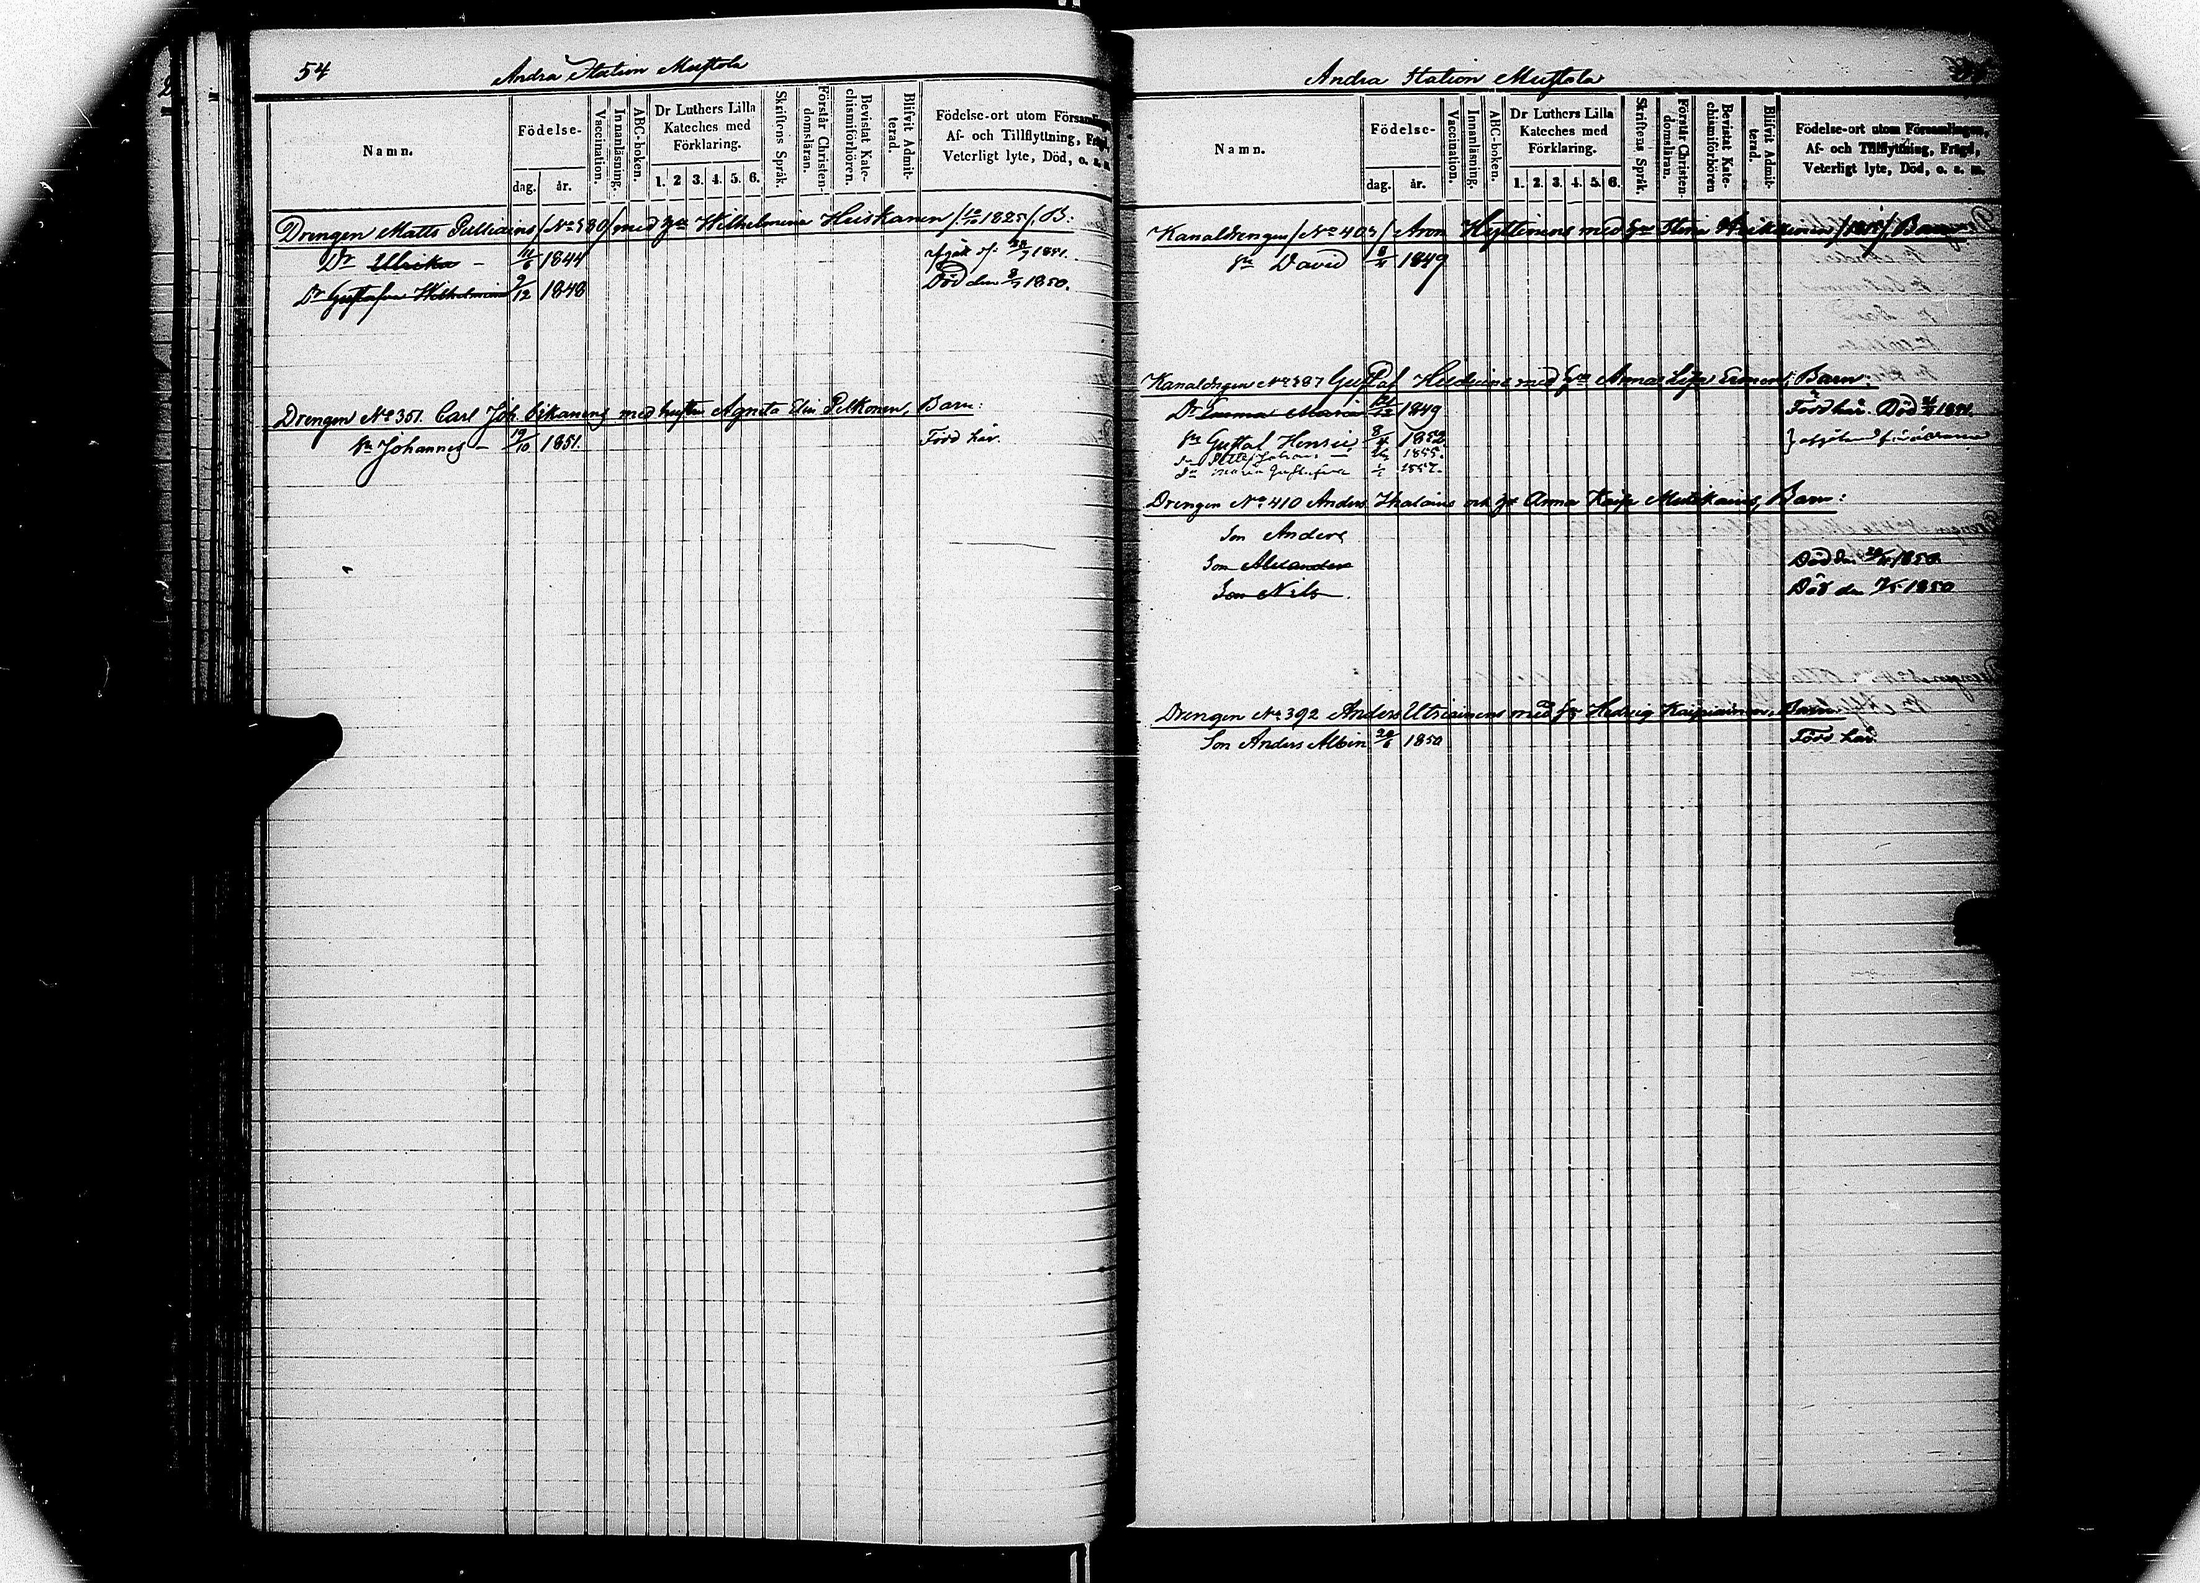 54
Andra Station Mustola
Namn.
Födelse-
dag. år.
Vaccination.
Innanläsning.
ABC-boken.
Dr Luthers Lilla Kateches med Förklaring.
1. 2 3. 4. 5. 6.
Skriftens Språk.
Förstår Christendomsläran.
Bevistat Katechismiförhören.
Blifvit Admitterad.
Födelse-ort utom Församlingen,
Af- och Tillflyttning, Frägd,
Veterligt lyte, Död, o. s. m.
Drengen Matts med hu Wilhelmina Huiskanen /12/10 1825/. B:
Dr Ulrika - 11/6 1844 1851.
Dr Gustafva Wilhelmina 9/12 1848 Död den 8/7 1850.
Drengen No 351. Carl Joh. med hustru Agneta Elin Pelkonen, Barn:
Sn Johannes - 19/10 1851. Född här.
Andra Station Mustola
Namn.
Födelse-
dag. år.
Vaccination.
Innanläsning.
ABC-boken.
Dr Luthers Lilla Kateches med Förklaring.
1. 2. 3. 4. 5. 6.
Skriftens Språk.
Förstår Christendomsläran.
Bevistat Katechismiförhören
Blifvit Admitterad.
Födelse-ort utom Församlingen,
Af- och Tillflyttning, Frägd,
Veterligt lyte, Död, o. s. m.
Kanaldrengen /No 403/ Aron Hyttinens med hu Stina Barn:
Sn David 1849
Kanaldrengen No 387 Gustaf med hu Anna Lisa Barn:
Dr Emma Maria 1849 Född här. Död
Sn Gustaf Henric 8/4 1852
1855.
Dr Maria Gustafva 1857.
Drengen No 410 Anders Ihalains och hu Anna Kaisa Barn:
Son Anders
Son Alexander Död den 1850.
Son Nils Död den 7/5 1850
Drengen No 392 Anders Utriainens med hu Hedvig Kaipiainen Barn:
Son Anders Albin 20/6 1850 Född här.